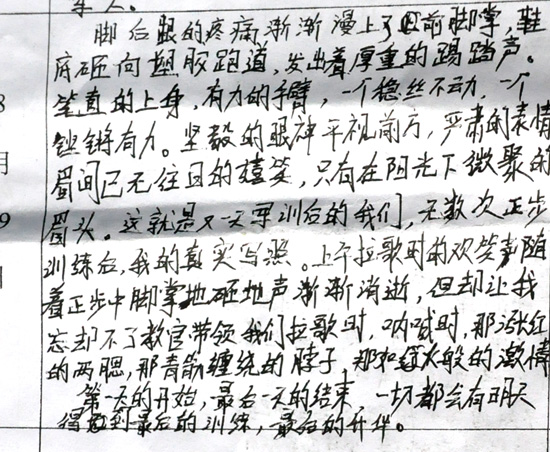 军人。
脚后跟的疼痛渐渐漫上了前脚掌,鞋
底砸向塑胶跑道,发出着厚重的踢踏声。
笔直的上身,有力的手臂,一个稳丝不动,一个
铿锵有力。坚毅的眼神平视前方,严肃的表情
眉间已无往日的嬉笑,只有在阳光下微聚的
眉头。这就是又一天军训后的我们,无数次正步
训练后,我的真实写照。上午拉歌时的欢笑声随
着正步中脚掌地砸地声渐渐消逝,但却让我
忘却不了教官带领我们拉歌时,呐喊时,那涨红
的两腮,那青筋缠绕的脖子,那和般的激情
第一天的开始,最后一天的结束,一切都会有明天
得到最后的训练,最后的开绊。
8
月
9
日